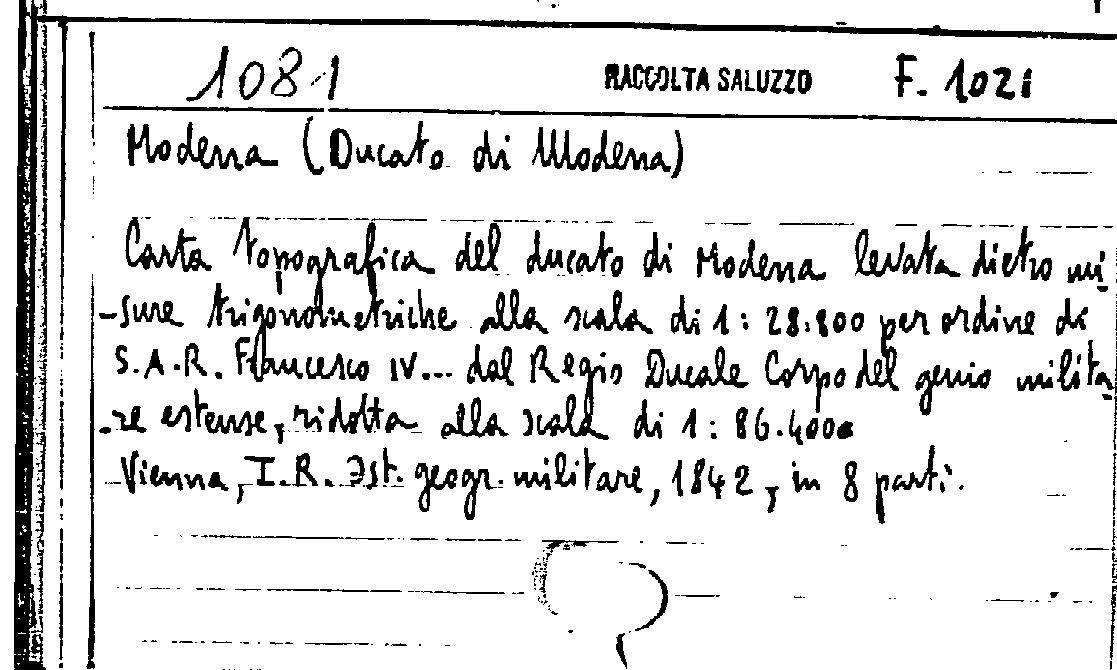 1081 RACCOLTA SALUZZO F. 1021
Modena (Ducato di Modena)
Carta topografica del ducato di Modena levata dietro mi
-sure trigonometriche alla scala di 1: 28.800 per ordine di
S.A.R. Francesco IV... dal Regio Ducale Corpo del genio milita
-re estense, ridotta alla scala di 1: 86.400
Vienna, I.R. Ist. geogr. militare, 1842, in 8 parti.